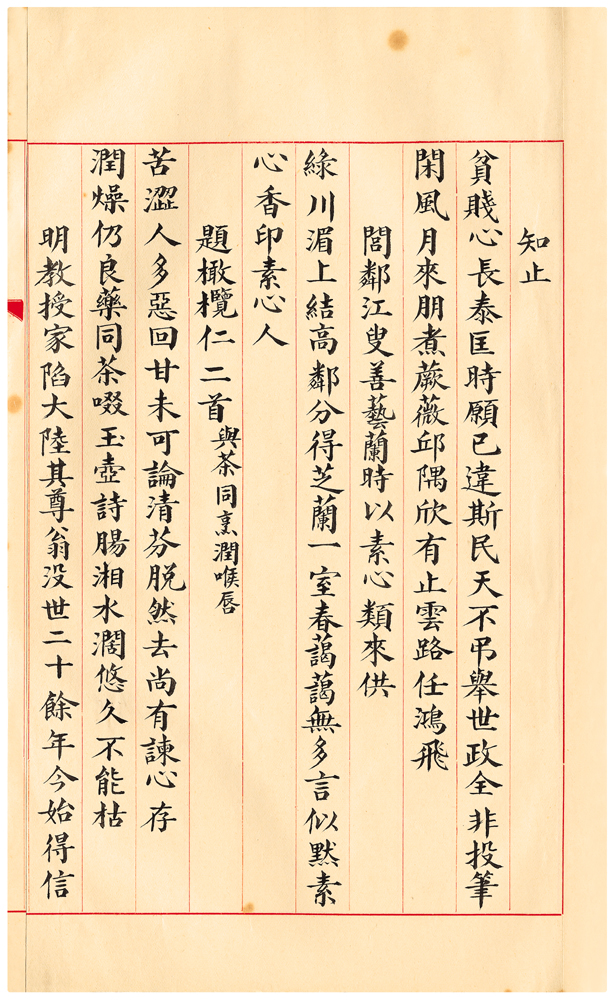 知止
貧賤心長泰匡時願已違斯民天不弔舉世政全非投筆
閑風月來朋煮蕨薇邱隅欣有止雲路任鴻飛
閭鄰江叟善藝蘭時以素心類來供
綠川湄上結高鄰分得芝蘭一室春藹藹無多言似默素
心香印素心人
題橄欖仁二首與茶同烹潤喉唇
苦澀人多惡回甘未可論清芬脫然去尚有諫心存
潤燥仍良藥同茶啜玉壺詩腸湘水濶悠久不能枯
明教授家陷大陸其尊翁没世二十餘年今始得信